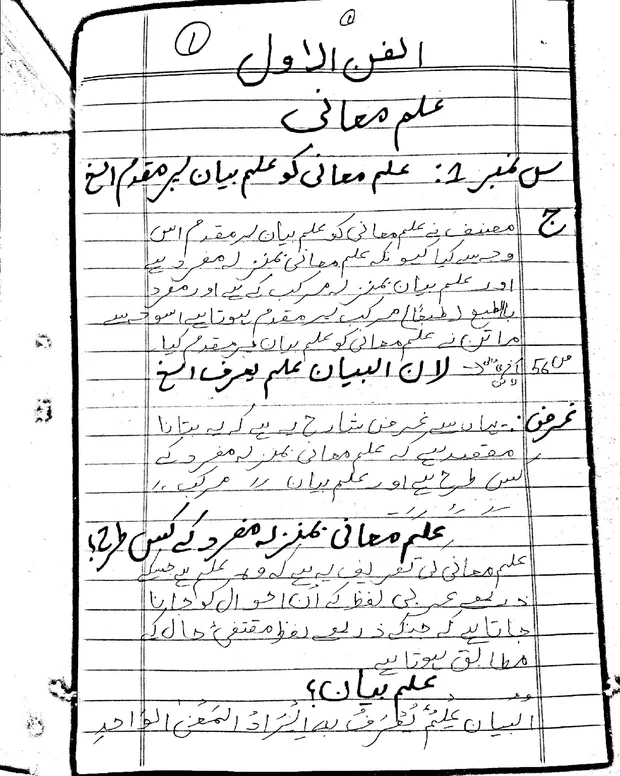 ۱
الفن الاول
علم معانی
س نمبر 1: علم معانی کو علم بیان پر مقدم الخ
ج مصنف نے علم معانی کو علم بیان پر مقدم اس
وجہ سے کیا کیونکہ علم معانی بمنزلہ مفرد ہے
اور علم بیان بمنزلہ مرکب کے ہے اور مفرد
بالطبع (طبعًا) مرکب پر مقدم ہوتا ہے اسوجہ سے
ماتن نے علم معانی کو علم بیان پر مقدم کیا
ص 56 آخری لائن لان البیان علم یعرف الخ
غرض:۔ یہاں سے غرض شارح یہ ہے کہ یہ بتانا
مقصد ہے کہ علم معانی بمنزلہ مفرد کے
کس طرح ہے اور علم بیان // مرکب //
// // //
علم معانی بمنزلہ مفرد کے کس طرح؟
علم معانی کی تعریف یہ ہے کہ وہ علم ہے جسکے
ذریعے عربی لفظ کے ان احوال کو جانا
جاتا ہے کہ جنکے ذریعے لفظ مقتضیٰ حال کے
مطابق ہوتا ہے
علم بیان؟
البیان عِلْمٌ یُعْرَفُ بِهِ اِیْرَادُ المَعْنیٰ الوَاحِدِ